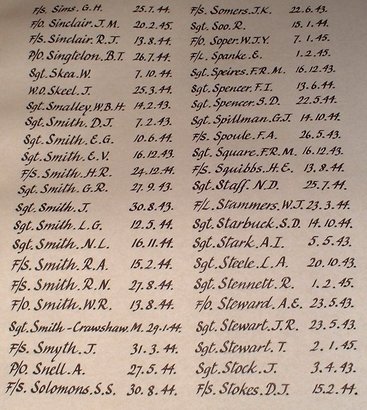 F/S. Sims. G.H. 25.7.44.
F/O. Sinclair. J.M. 20.2.45.
F/S. Sinclair. R.J. 13.8.44.
P/O. Singleton. B.T. 26.7.44.
Sgt. Skea. W. 7.10.44.
W.O. Skeel. J. 25.3.44.
Sgt. Smalley. W.B.H. 14.2.43.
Sgt. Smith. D.J. 7.2.43.
Sgt. Smith. E.G. 10.6.44.
Sgt. Smith. E.V. 16.12.43.
F/S. Smith. H.R. 24.12.44.
Sgt. Smith. G.R. 27.9.43.
Sgt. Smith. J. 30.8.43.
Sgt. Smith. L.G. 12.5.44.
Sgt. Smith. N.L. 16.11.44.
F/S. Smith. R.A. 15.2.44.
F/S. Smith. R.N. 27.8.44.
F/O. Smith. W.R. 13.8.44.
Sgt. Smith-Crawshaw. M. 29.1.44.
F/S. Smyth. J. 31.3.44.
P/O. Snell. A. 27.5.44.
F/S. Solomons. S.S. 30.8.44.
F/S. Somers. J.K. 22.6.43.
Sgt. Soo. R. 15.1.44.
F/O. Soper. W.J.Y. 7.1.45.
F/L. Spanke. E. 1.2.45.
Sgt. Speires. F.R.M. 16.12.43.
Sgt. Spencer. F.I. 13.6.44.
Sgt. Spencer. S.D. 22.5.44.
Sgt. Spillman. G.J. 14.10.44.
F/S. Spoule. F.A. 26.5.43.
Sgt. Square. F.R.M. 16.12.43.
F/S. Squibbs. H.E. 13.8.44.
Sgt. Staff. N.D. 25.7.44.
F/L. Stammers. W.J. 23.3.44.
Sgt. Starbuck. S.D. 14.10.44.
Sgt. Stark. A.I. 5.5.43.
Sgt. Steele. L.A. 20.10.43.
Sgt. Stennett. R. 1.2.45.
F/O. Steward. A.E. 23.5.43.
Sgt. Stewart. J.R. 23.5.43.
Sgt. Stewart. T. 2.1.45.
Sgt. Stock. J. 3.4.43.
F/S. Stokes. D.J. 15.2.44.